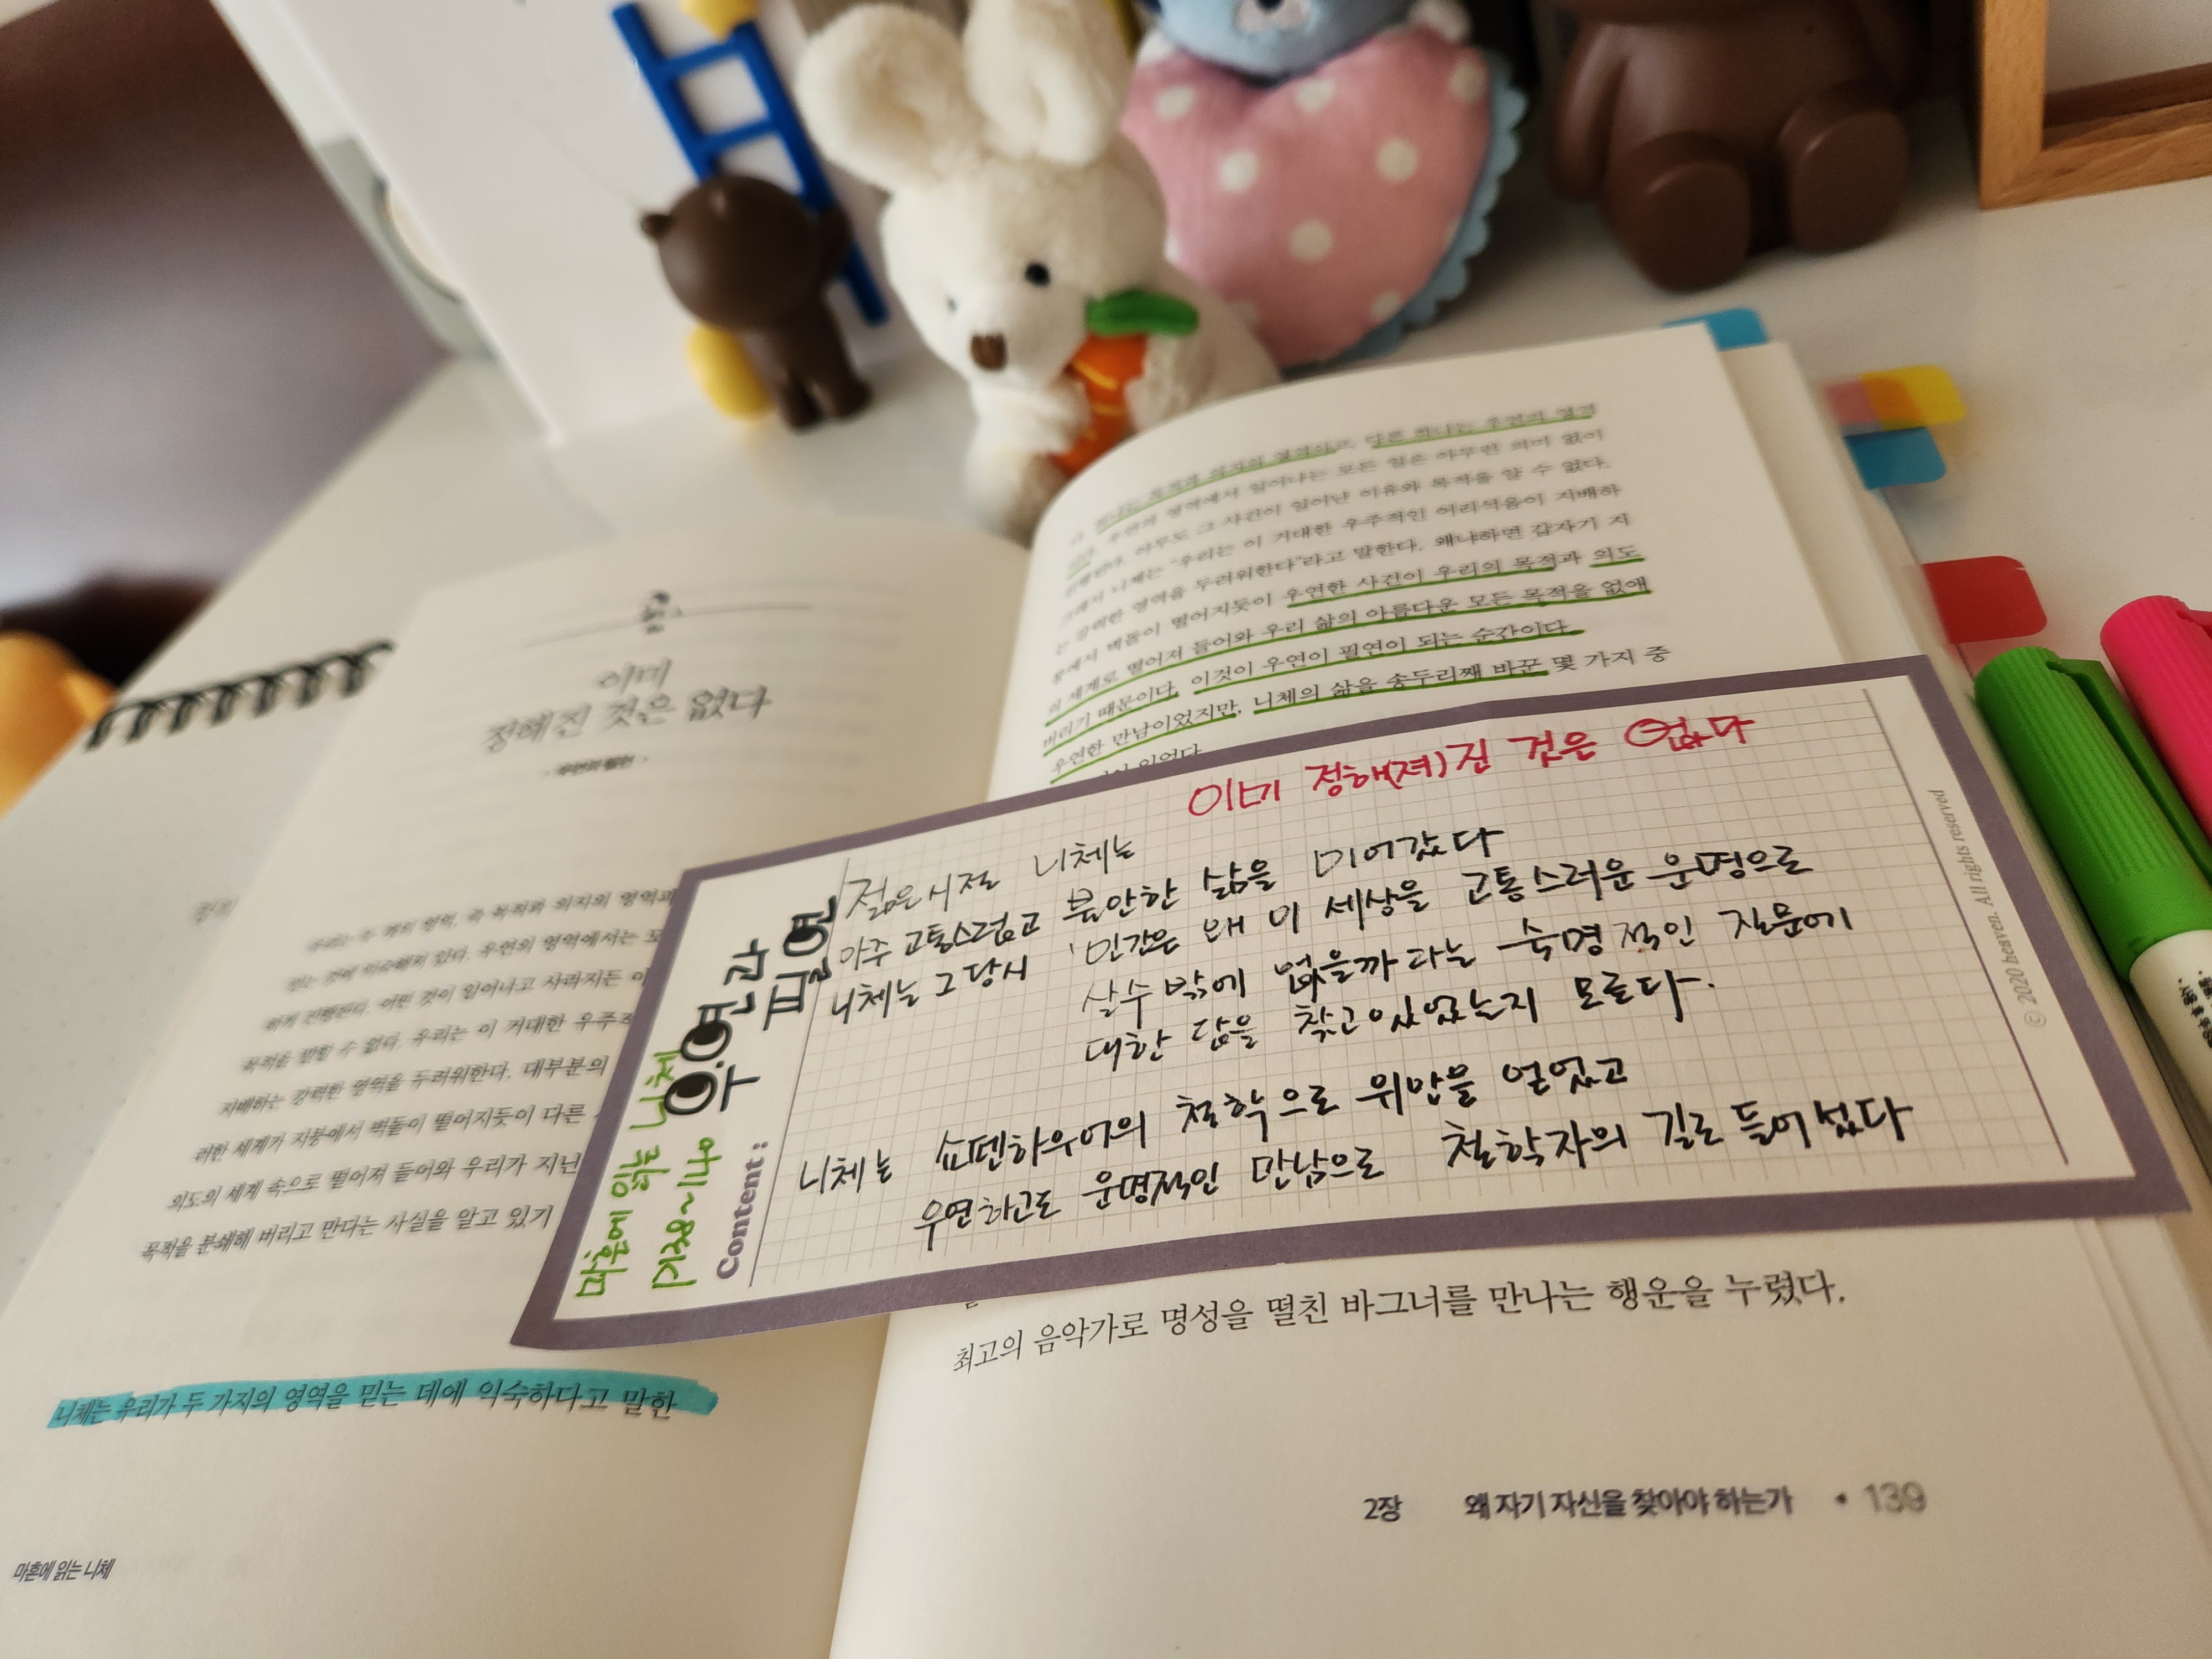 이미
정해진 것은 없다
우리는 두 개의 영역, 즉 목적과 의지의 영역과
있는 것에 익숙해져 있다. 우연의 영역에서는 모
하게 진행된다. 어떤 것이 일어나고 사라지든 이
목적을 말할 수 없다. 우리는 이 거대한 우주적
지배하는 강력한 영역을 두려워한다. 대부분의
러한 세계가 지붕에서 벽돌이 떨어지듯이 다른
의도의 세계 속으로 떨어져 들어와 우리가 지닌
목적을 분쇄해 버리고 만다는 사실을 알고 있기
니체는 우리가 두 가지의 영역을 믿는 데에 익숙하다고 말한
마흔에 읽는 니체
다. 하나는 목적과 의지의 영역이고, 다른 하나는 우연의 영역
이다. 우연의 영역에서 일어나는 모든 일은 아무런 의미 없이
진행된다. 아무도 그 사건이 일어난 이유와 목적을 알 수 없다.
그래서 니체는 "우리는 이 거대한 우주적인 어리석음이 지배하
는 강력한 영역을 두려워한다"라고 말한다. 왜냐하면 갑자기 지
붕에서 벽돌이 떨어지듯이 우연한 사건이 우리의 목적과 의도
의 세계로 떨어져 들어와 우리 삶의 아름다운 모든 목적을 없애
버리기 때문이다. 이것이 우연이 필연이 되는 순간이다.
우연한 만남이었지만, 니체의 삶을 송두리째 바꾼 몇 가지 중
있었다
마흔에 읽는 니체
P138~140
Content :
우연과
필연
이미 정해(져)진 것은 없다
젊은시절 니체는
아주 고통스럽고 불안한 삶을 이어갔다
니체는 그당시 '인간은 왜 이 세상을 고통스러운 운명으로
살수밖에 없을까'라는 숙명적인 질문에
대한 답을 찾고있었는지 모른다.
니체는 쇼펜하우어의 철학으로 위안을 얻었고
우연하고도 운명적인 만남으로 철학자의 길로 들어섰다
© 2020 heaven. All rights reserved
최고의 음악가로 명성을 떨친 바그너를 만나는 행운을 누렸다.
2장 왜 자기 자신을 찾아야 하는가 • 139